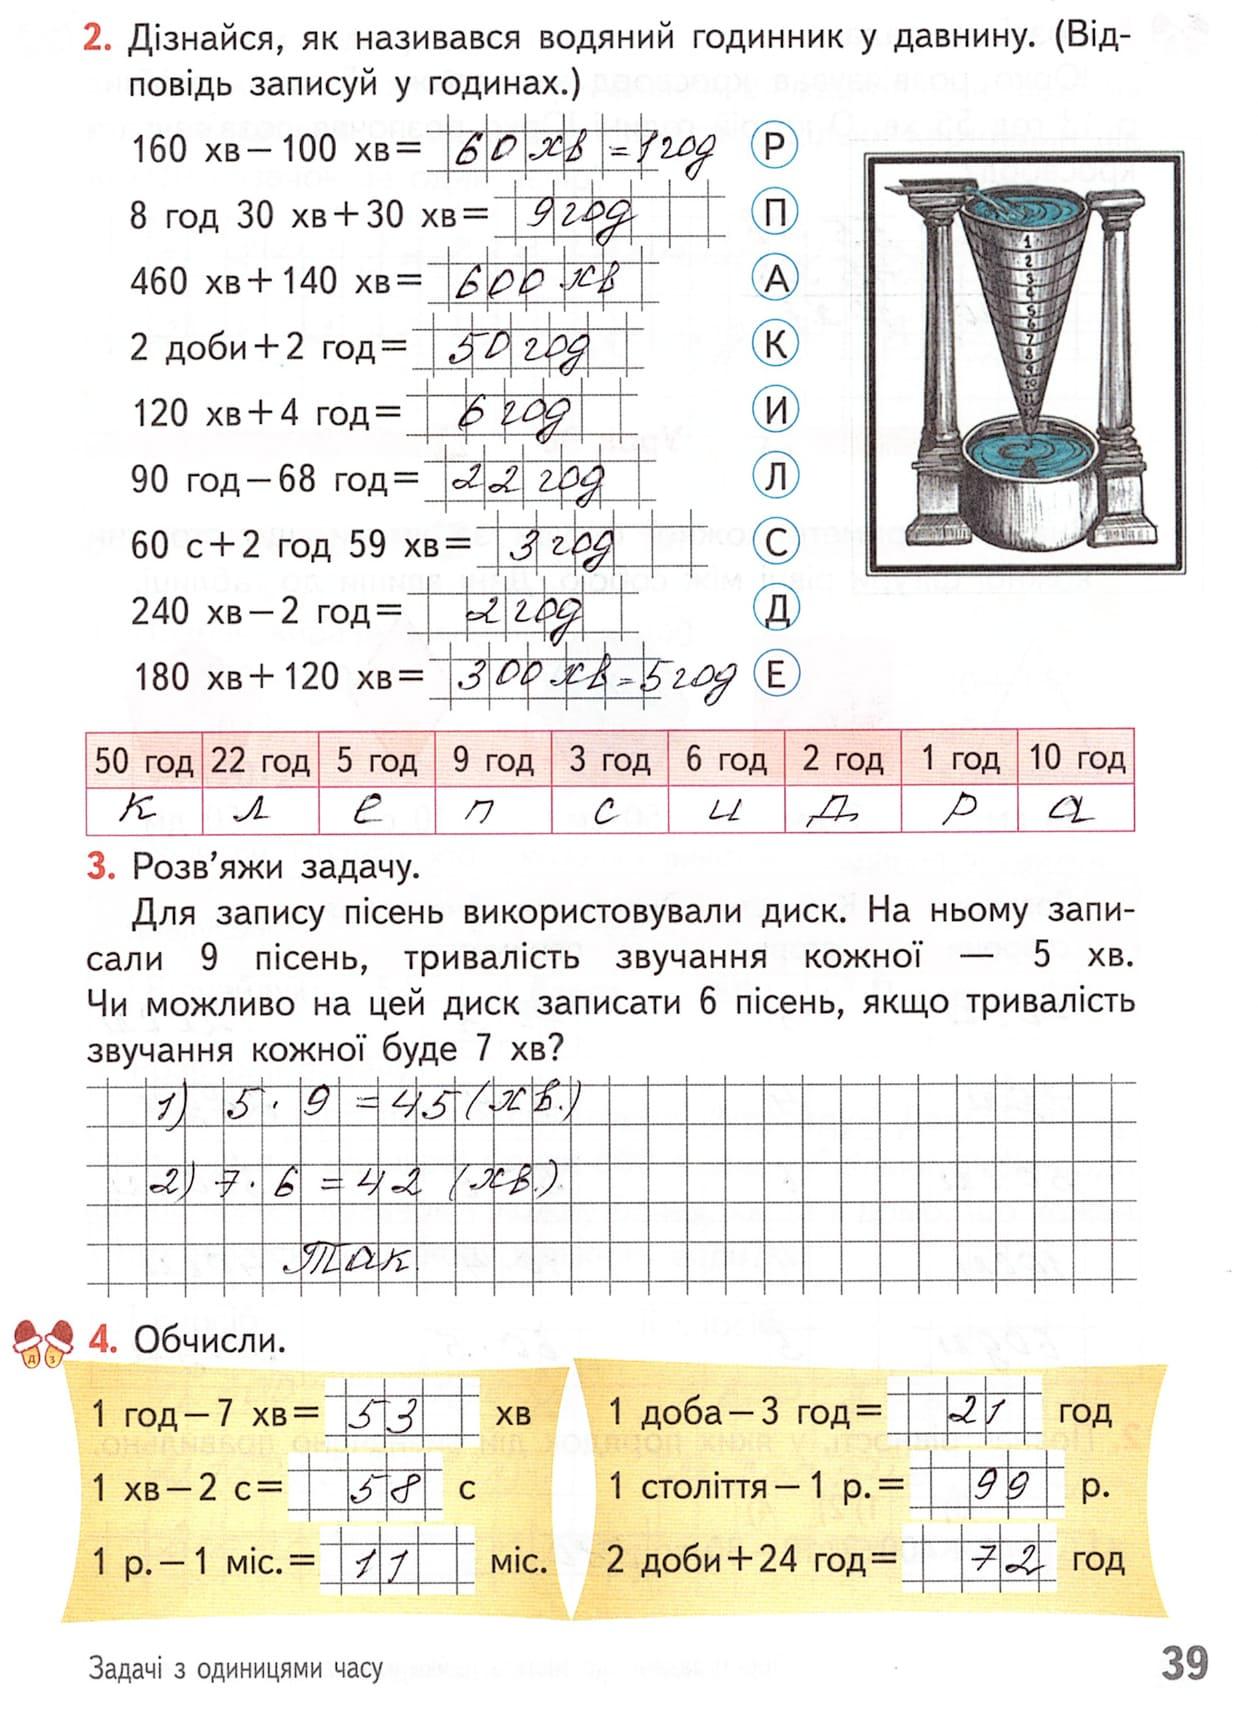 2. Дізнайся, як називався водяний годинник у давнину. (Від-
повідь записуй у годинах.)
160 хв – 100 хв = 60 хв = 1 год Р
8 год 30 хв + 30 хв = 9 год П
460 хв + 140 хв = 600 хв А
2 доби + 2 год = 50 год К
120 хв + 4 год = 6 год И
90 год – 68 год = 22 год Л
60 с + 2 год 59 хв = 3 год С
240 хв – 2 год = 2 год Д
180 хв + 120 хв = 300 хв = 5 год Е
1
2
3
4
5
6
7
8
9
10
11
50 год 22 год 5 год 9 год 3 год 6 год 2 год 1 год 10 год
к л е п с и д р а
3. Розв’яжи задачу.
Для запису пісень використовували диск. На ньому запи-
сали 9 пісень, тривалість звучання кожної — 5 хв.
Чи можливо на цей диск записати 6 пісень, якщо тривалість
звучання кожної буде 7 хв?
1) 5 · 9 = 45 (хв.)
2) 7 · 6 = 42 (хв.)
Так
4. Обчисли.
Д З
1 год – 7 хв = 53 хв 1 доба – 3 год = 21 год
1 хв – 2 с = 58 с 1 століття – 1 р. = 99 р.
1 р. – 1 міс. = 11 міс. 2 доби + 24 год = 72 год
Задачі з одиницями часу 39